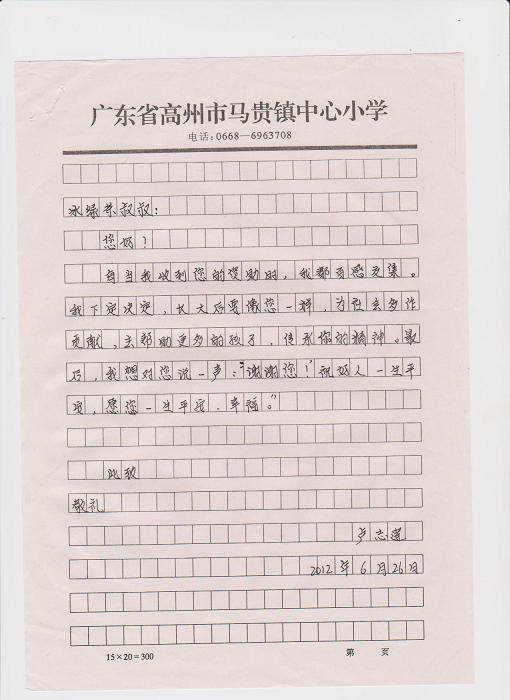 广东省高州市马贵镇中心小学
电话:0668—6963708
冰绿茶叔叔：
您好！
每当我收到您的资助时，我都百感交集。
我下定决定，长大后要像您一样，为社会多作
贡献，去帮助更多的孩子，传承你的精神。最
后，我想对您说一声：“谢谢您！祝好人一生平
安，愿您一生平安．幸福。”
此致
敬礼
卢志
2012年6月26日
15×20=300
第 页